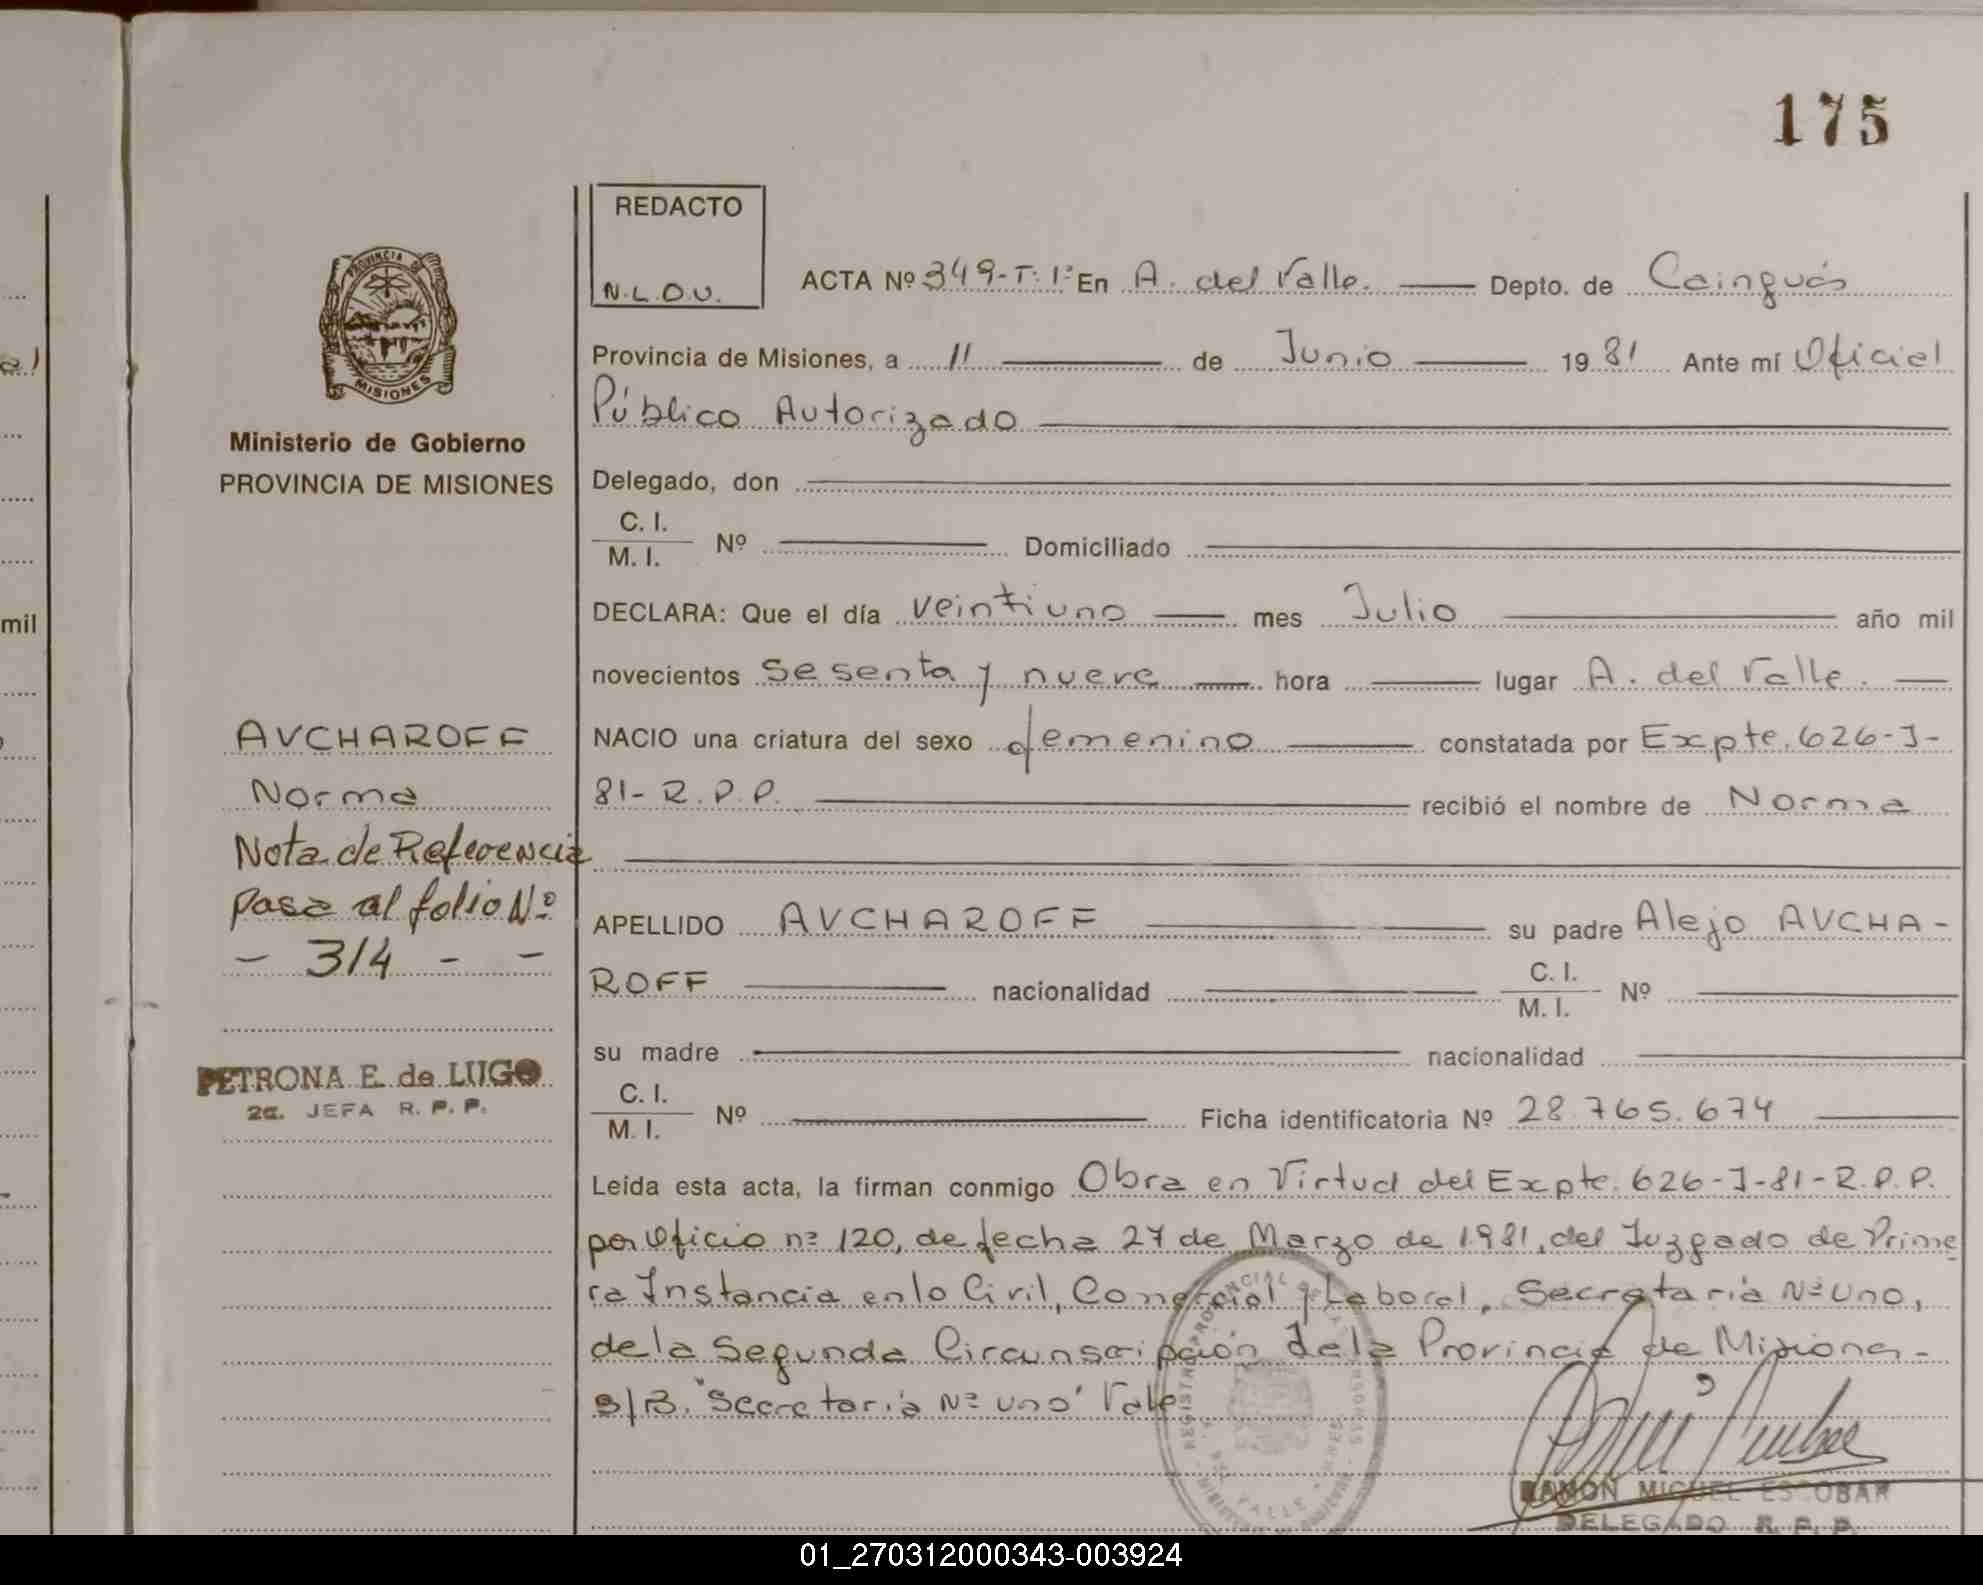 175
REDACTO
N.L.O.V.
PROVINCIA DE
MISIONES
Ministerio de Gobierno
PROVINCIA DE MISIONES
ACTA Nº 349-T:1º En A. del Valle. Depto. de Cainguás
Provincia de Misiones, a 11 de Junio 1981 Ante mí Oficial
Público Autorizado
Delegado, don
C. I.
M. I. Nº Domiciliado
DECLARA: Que el día veintiuno mes Julio año mil
novecientos sesenta y nueve hora lugar A. del Valle.
NACIO una criatura del sexo femenino constatada por Expte. 626-J-
81-R.P.P. recibió el nombre de Norma
APELLIDO AVCHAROFF su padre Alejo AVCHA-
ROFF nacionalidad C. I.
M. I. Nº
su madre nacionalidad
C. I.
M. I. Nº Ficha identificatoria Nº 28.765.674
Leída esta acta, la firman conmigo Obra en Virtud del Expte. 626-J-81-R.P.P.
por Oficio nº 120, de fecha 27 de Marzo de 1.981, del Juzgado de Prime
ra Instancia en lo Civil, Comercial y Laboral, Secretaría Nº Uno,
de la Segunda Circunscripción de la Provincia de Misiones-
S/R. "Secretaría Nº Uno" Vale
RAMON MIGUEL ESCOBAR
DELEGADO R. P. P.
AVCHAROFF
Norma
Nota de Referencia
Pasa al folio Nº
- 314 - -
PETRONA E. de LUGO
2a. JEFA R. P. P.
mil
01_270312000343-003924